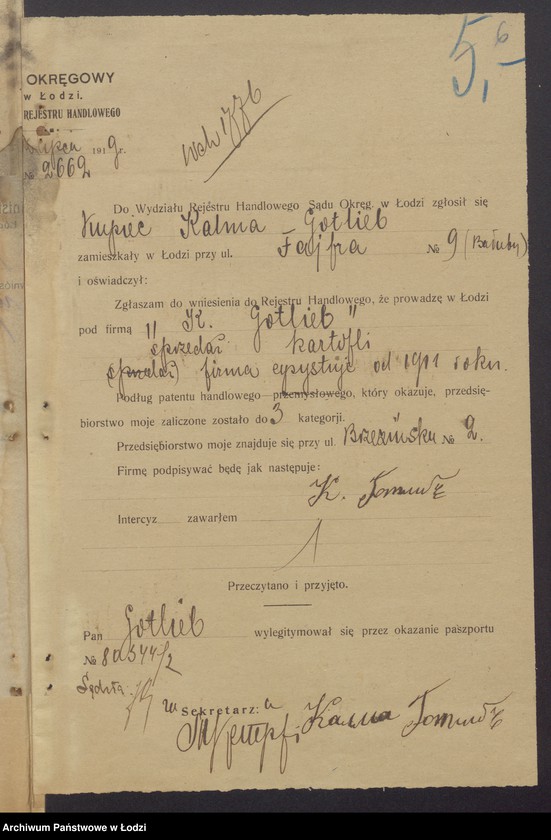 5,6
OKRĘGOWY
w Łodzi.
REJESTRU HANDLOWEGO
lipca 1919 r.
№ 2662
Do Wydziału Rejéstru Handlowego Sądu Okręg. w Łodzi zgłosił się
Kupiec Kalma Gotlieb
zamieszkały w Łodzi przy ul. Fajfra № 9 (Bałuty)
i oświadczył:
Zgłaszam do wniesienia do Rejestru Handlowego, że prowadzę w Łodzi
pod firmą "K. Gotlieb"
sprzedaż kartofli
firma egzystuje od 1911 roku.
Podług patentu handlowego przemysłowego, który okazuje, przedsię-
biorstwo moje zaliczone zostało do 3 kategorji.
Przedsiębiorstwo moje znajduje się przy ul. Brzezińska № 2.
Firmę podpisywać będę jak następuje:
K.
Intercyz zawarłem
Przeczytano i przyjęto.
Pan Gotlieb wylegitymował się przez okazanie paszportu
№
Sędzia
Sekretarz:
Kalma
Archiwum Państwowe w Łodzi